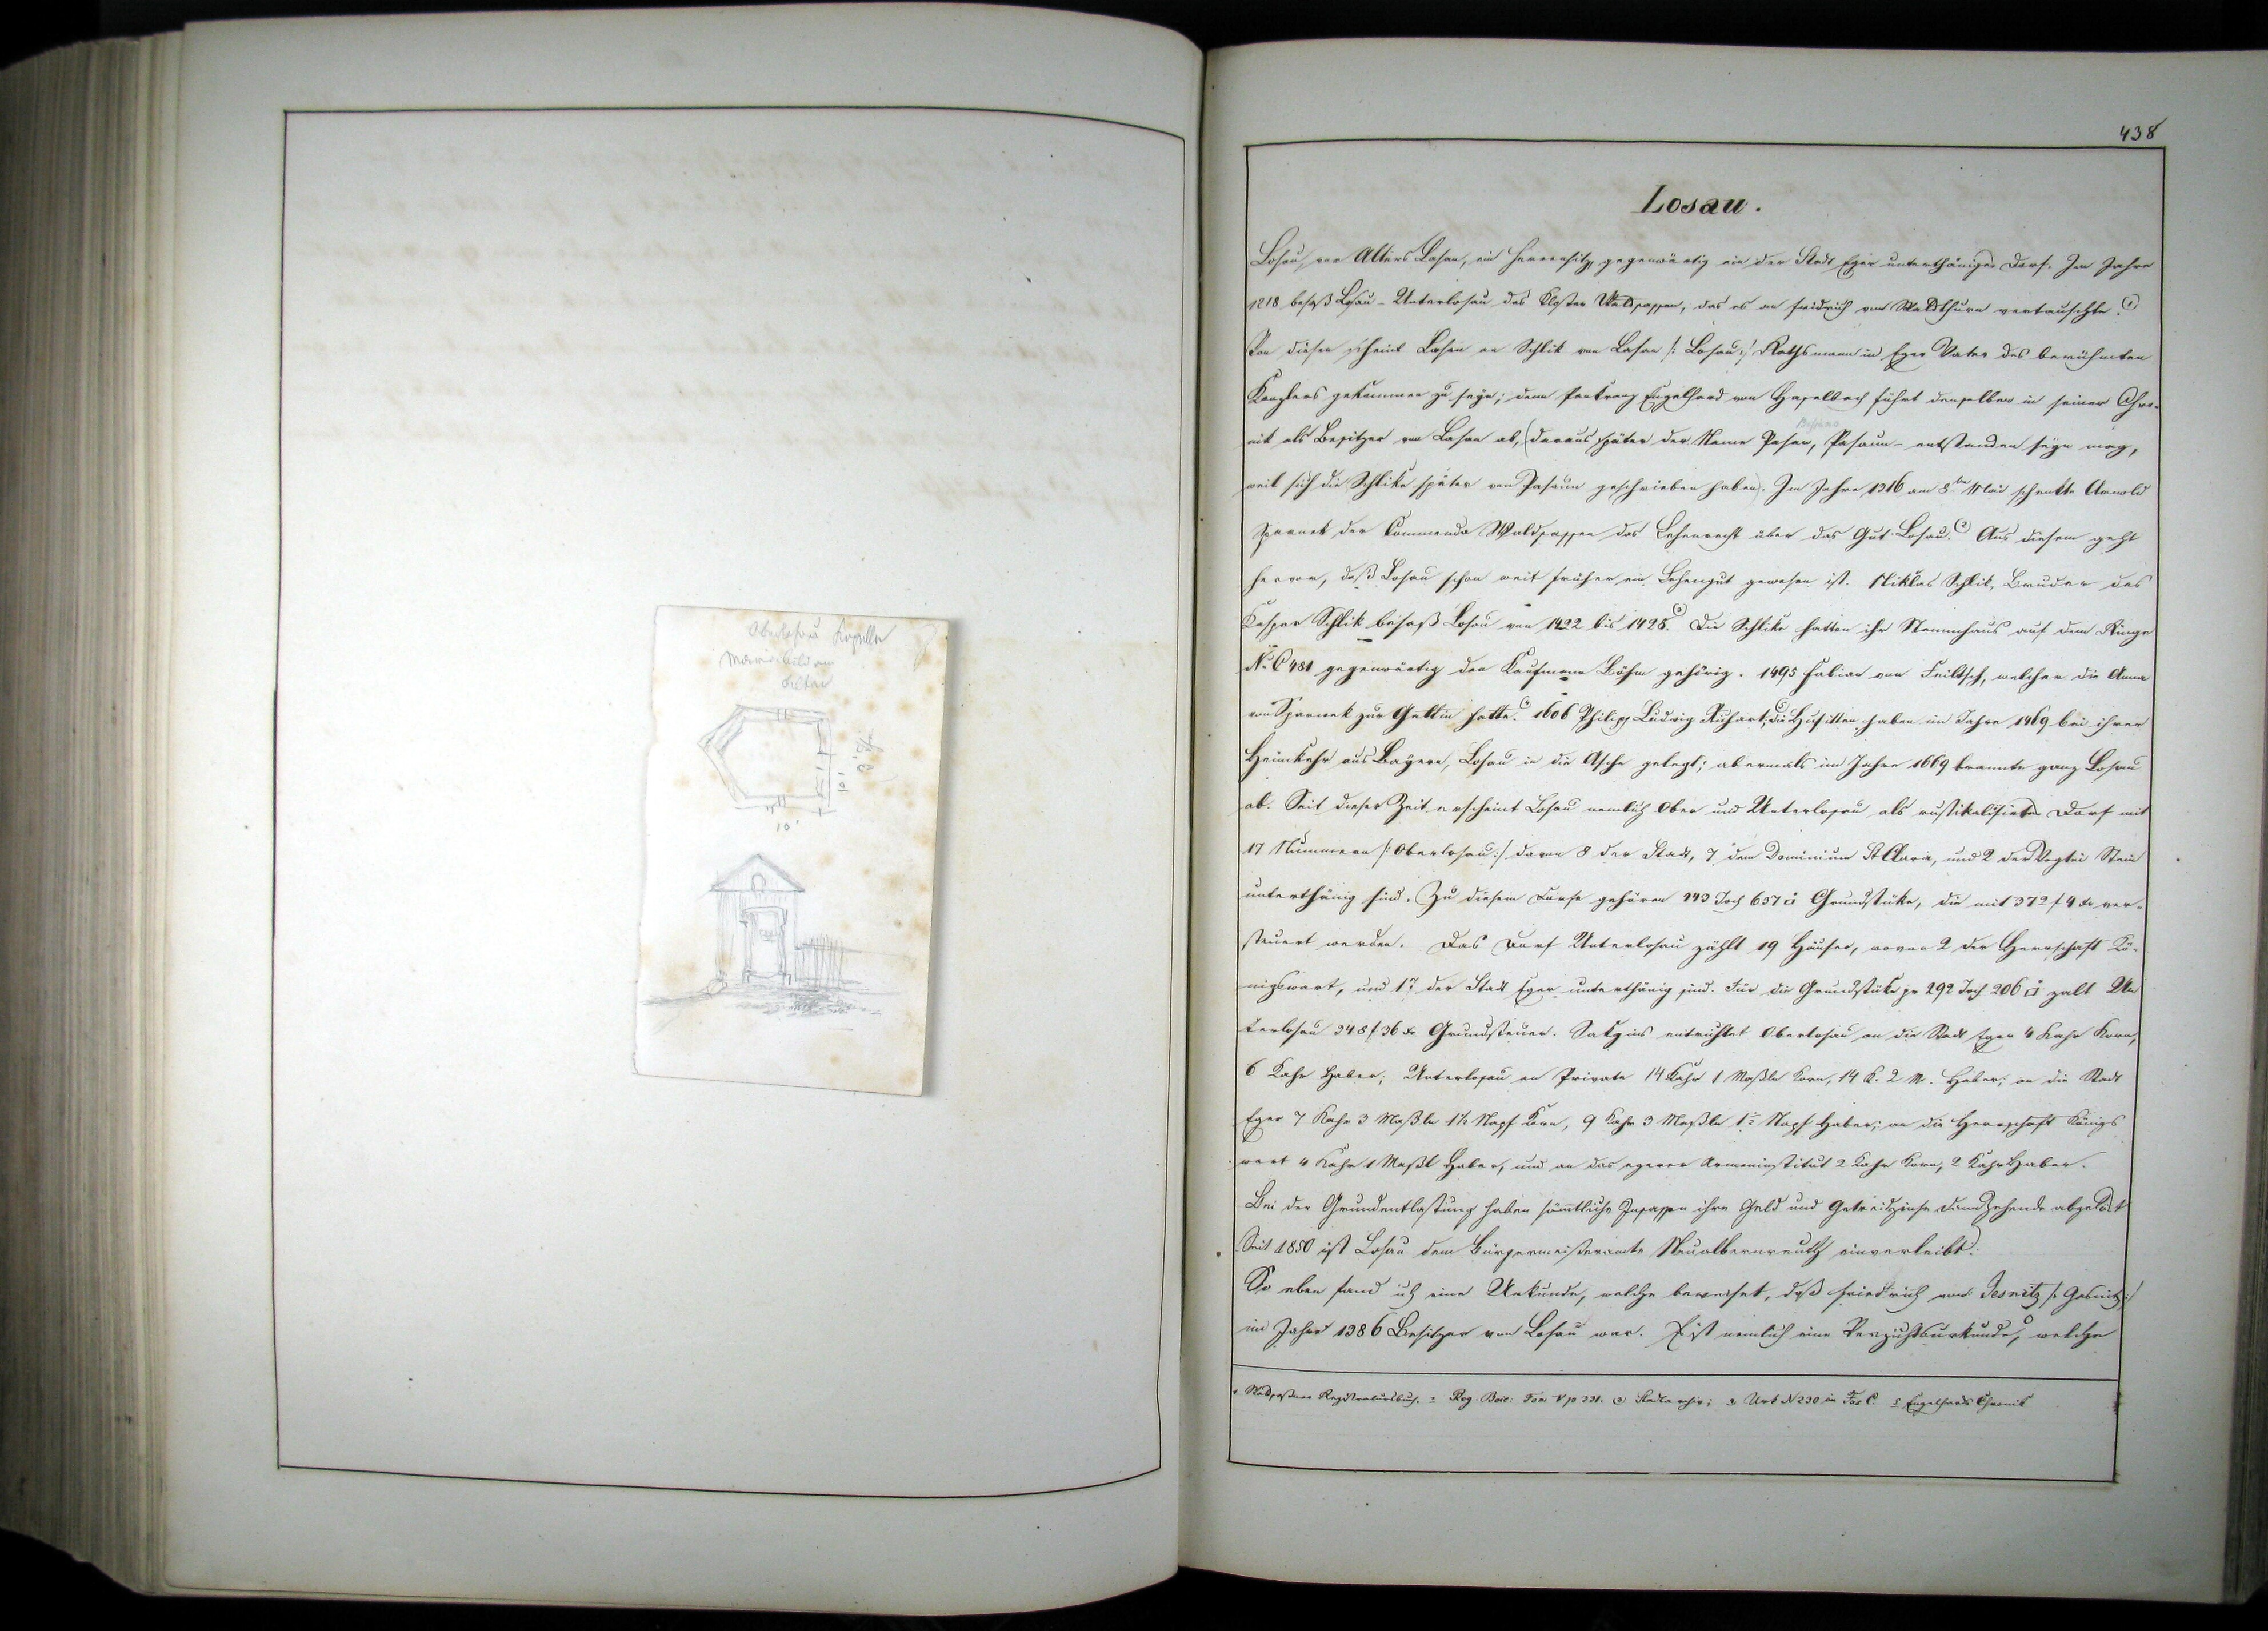 Oberlosau Kapelle
Marienbild am
Altar
10'
10'
438
Losau.
Losau, vor Alters Losan, ein Herrensitz, gegenwärtig ein der Stadt Eger unterthäniges Dorf. Im Jahre
1218 besaß Losau - Unterlosau das Kloster Waldsassen, das es an Fridrich von Waldthurn vertauschte. 1)
Von diesen scheint Losan an Schlik von Lasan /: Losau :/ Rathsmann in Eger Vater des berühmten
Kanzlers gekommen zu seyn; denn Pankraz Engelhard von Haselbach führt denselben in seiner Chro-
nik als Besitzer von Lasan ab, (daraus später der Name Pasan, Pasaun - entstanden seyn mag,
weil sich die Schlike später von Pasaun geschrieben haben). Im Jahre 1316 am 8ten Mai schenkte Arnold
Sparnek der Commenda Waldsassen das Lehenrecht über das Gut Losau. 2) Aus diesem geht
hervor, daß Losau schon weit früher ein Lehengut gewesen ist. Niklas Schlik, Bruder des
Kaspar Schlik besaß Losau von 1422 bis 1428. Die Schlike hatten ihr Stammhaus auf dem Ringe
No C 481 gegenwärtig den Kaufmann Böhm gehörig. 1495 Fabian von Feiltsch, welcher die Anna
von Sparnek zur Gattin hatte. 1606 Philipp Ludwig Ruhart, die Husitten haben im Jahre 1469 bei ihrer
Heimkehr aus Bayern, Losau in die Asche gelegt; abermals im Jahre 1669 brannte ganz Losau
ab. Seit dieser Zeit erscheint Losau nemlich Ober und Unterlosau als rustikalisirtes Dorf mit
17 Nummern /: Oberlosau :/ davon 8 der Stadt, 7 dem Dominium St Clara, und 2 der Vogtei Stein
unterthänig sind. Zu diesem Dorfe gehören 243 Joch 637 □ Grundstüke, die mit 372 f 4 xr ver-
steuert werden. Das Dorf Unterlosau zählt 19 Häuser, wovon 2 der Herrschaft Kö-
nigswart, und 17 der Stadt Eger unterthänig sind. Für die Grundstüke pr 292 Joch 206 □ zalt Un
terlosau 348 f 36 xr Grundsteuer. Sakzins entrichtet Oberlosau an die Stadt Eger 4 Kahr Korn,
6 Kahr Haber; Unterlosau an Private 14 Kahr 1 Maßle Korn, 14 K. 2 M. Haber; an die Stadt
Eger 7 Kahr 3 Maßle 1½ Napf Korn, 9 Kahr 3 Maßle 1½ Napf Haber; an die Herrschaft Königs
wart 4 Kahr 1 Maßl Haber, und an das egerer Armeninstitut 2 Kahr Korn, 2 Kahr Haber.
Bei der Grundentlastung haben sämtliche Insassen ihre Geld und Getreidzinse dann Zehende abgelöst
Seit 1850 ist Losau dem Bürgermeisteramte Neualbenreuth einverleibt.
So eben fand ich eine Urkunde, welche beweiset, daß Friedrich von Jesnitz /: Gosnitz :/
im Jahre 1386 Besitzer von Losau war. Es ist nemlich eine Verzichtsurkunde, welche
1 Waldsaßner Registraturbuch. 2 Reg. Boic. Tom V p 331. 3 Stadtarchiv; 4 Urb N 230 in Fas C. 5 Engelhards Chronik